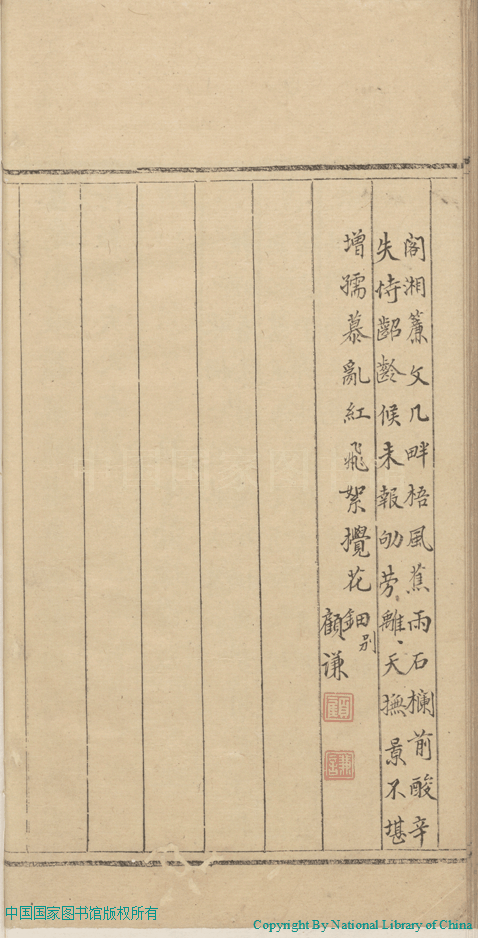 閣湘簾文几畔梧風蕉雨石欄前酸辛
失恃齠齡候未報劬勞離、天撫景不堪
增孺慕亂紅飛絮攪花鈿
別
顧謙
中国国家图书馆版权所有
Copyright By National Library of China